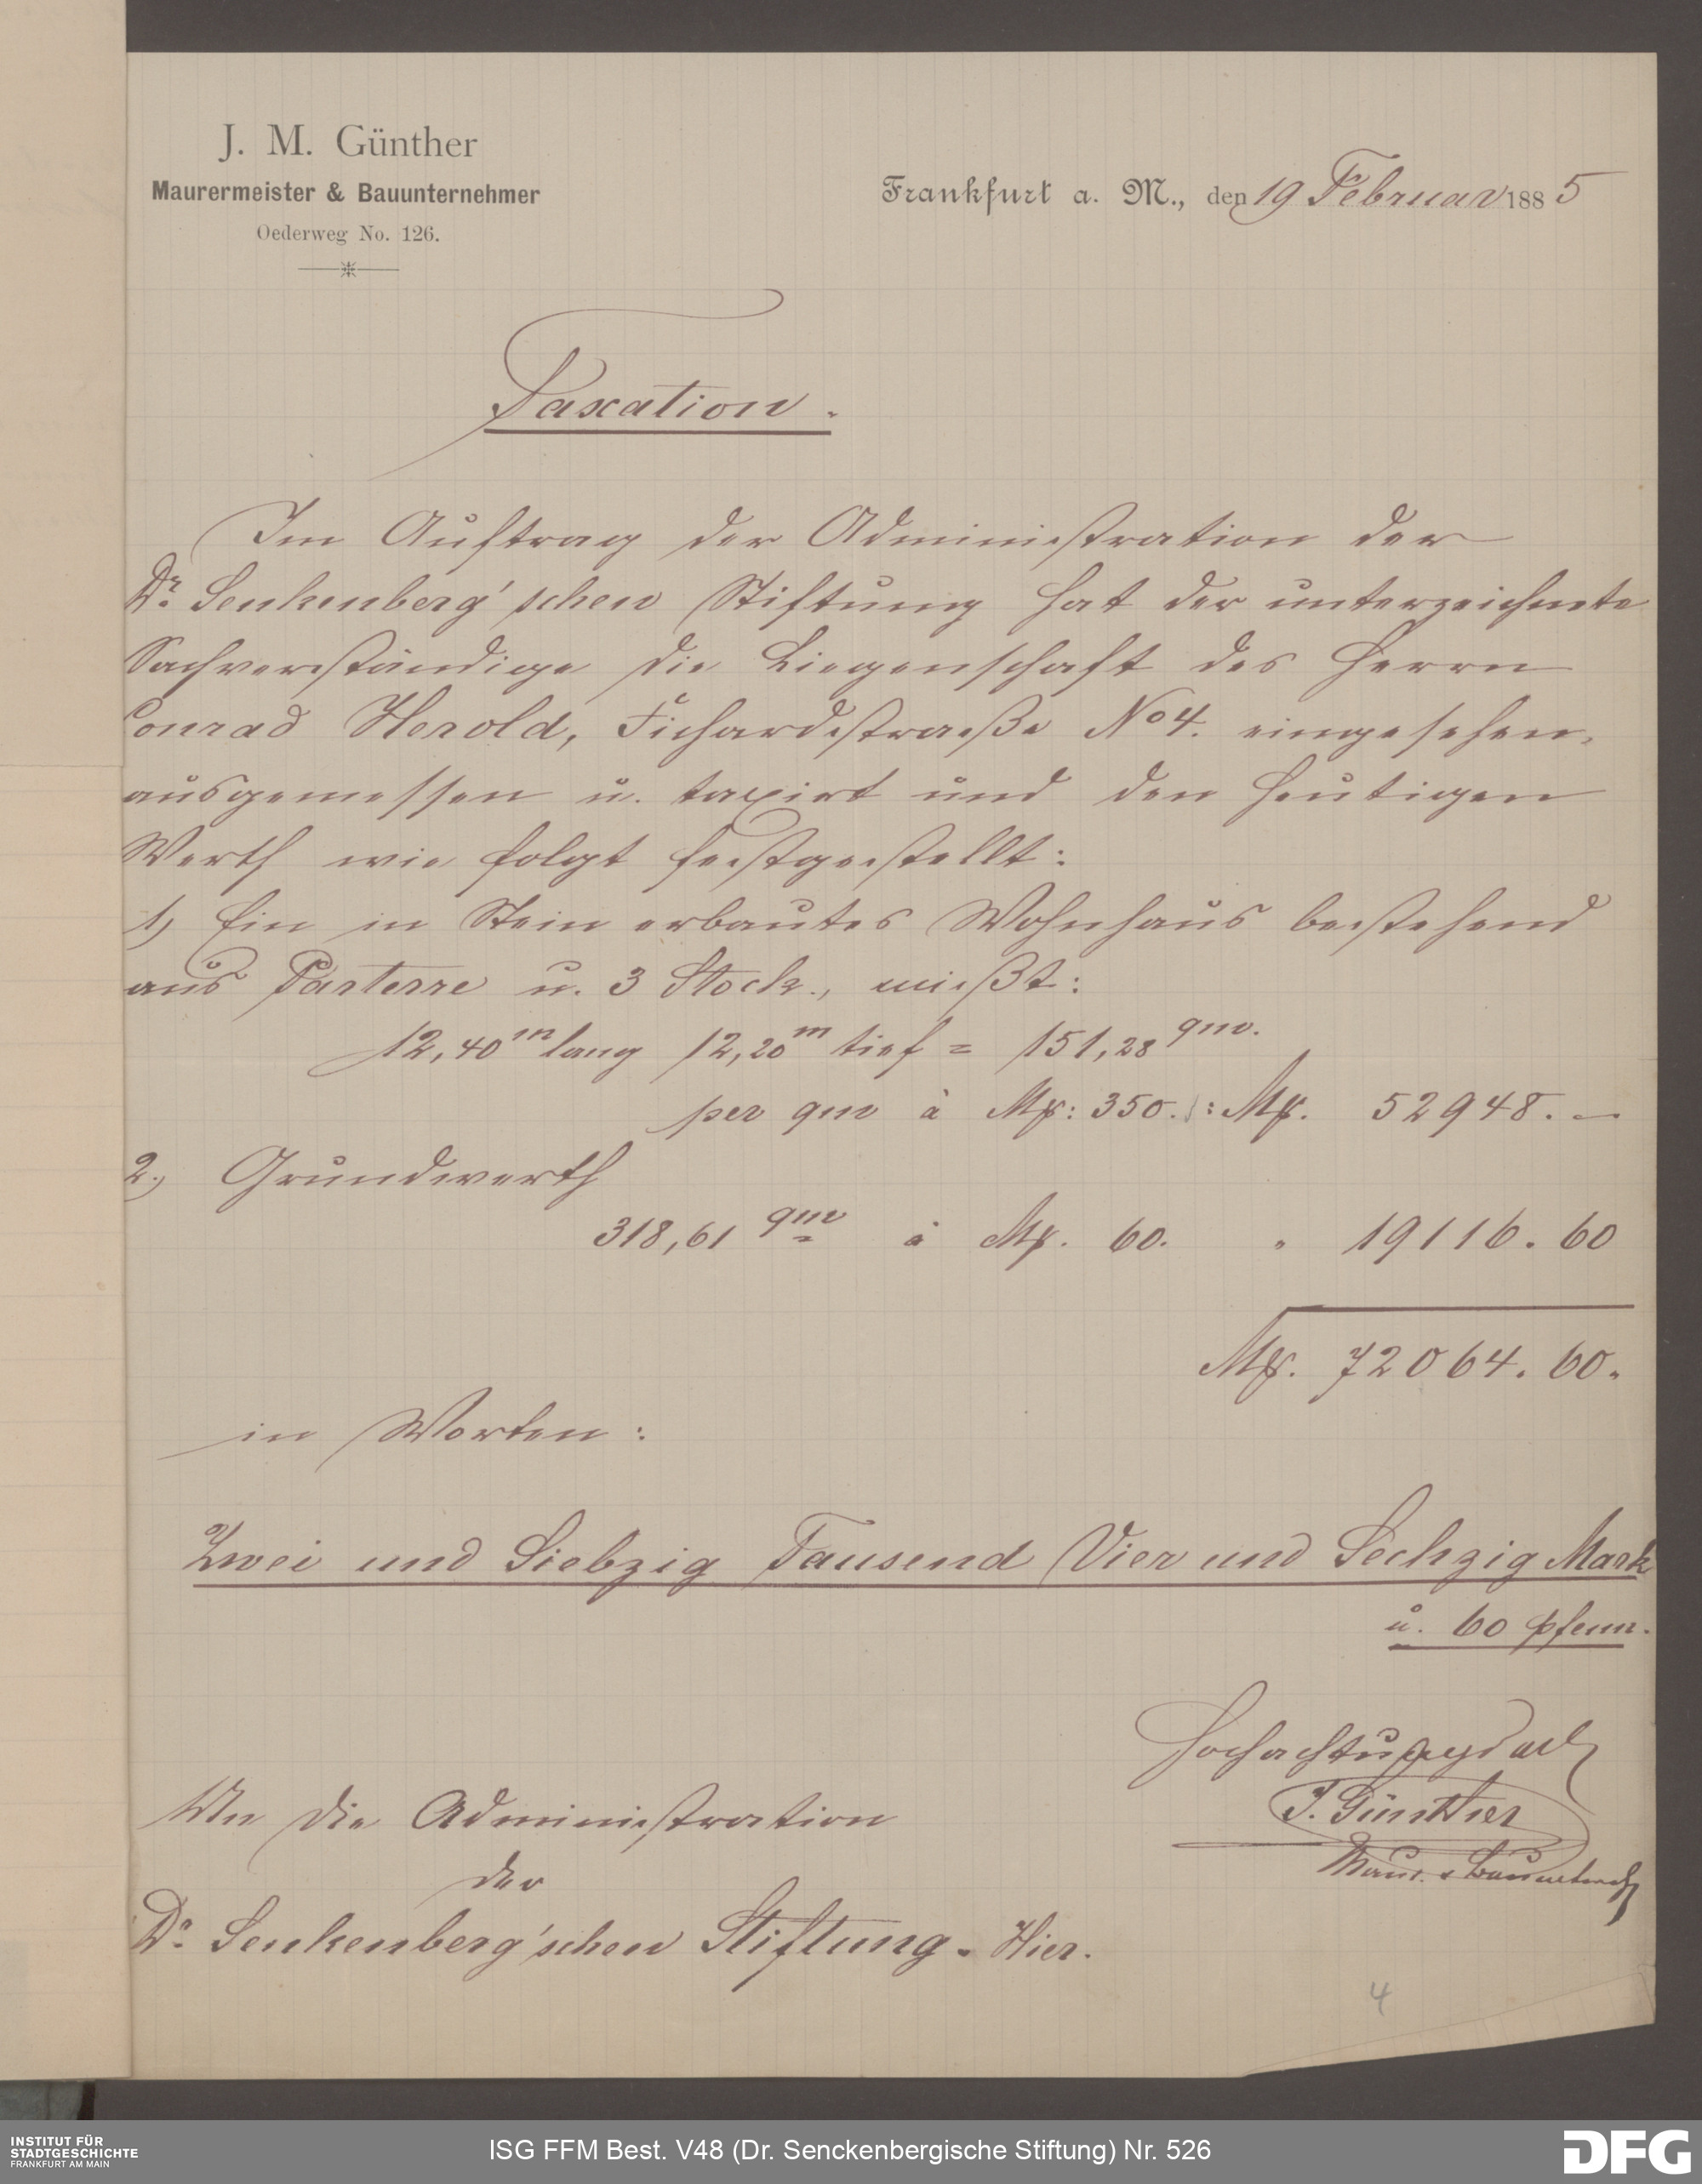 J. M. Günther
Maurermeister & Bauunternehmer
Oederweg No. 126.
Frankfurt a. M., den 19 Februar 1885
Taxation.
Im Auftrag der Administration der
Dr. Senkenberg'schen Stiftung hat der unterzeichnete
Sachverständige die Liegenschaft des Herrn
Conrad Herold, Fichardstraße No 4. eingesehen,
ausgemessen u. taxirt und den heutigen
Werth wie folgt festgestellt:
1) Ein in Stein erbautes Wohnhaus bestehend
aus Parterre u. 3 Stock., mißt:
12,40 m lang 12,20 m tief = 151,28 qm.
per qm à Mk: 350. : Mk. 52948. —
2.) Grundwerth
318,61 qm à Mk. 60. " 19116. 60
Mk. 72064. 60.
in Worten:
Zwei und Siebzig Tausend Vier und Sechzig Mark
u. 60 pfenn.
Hochachtungsvoll
J. Günther
An die Administration
der
Dr. Senkenberg'schen Stiftung. Hier.
4
INSTITUT FÜR
STADTGESCHICHTE
FRANKFURT AM MAIN
ISG FFM Best. V48 (Dr. Senckenbergische Stiftung) Nr. 526
DFG